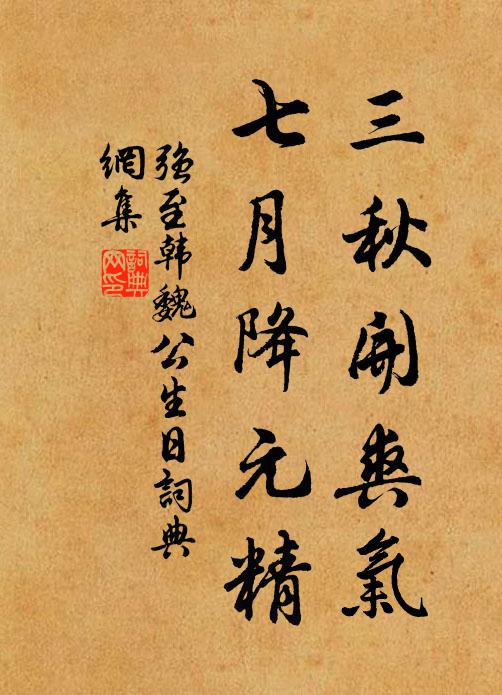 三秋開爽氣
七月降元精
强至韩魏公生日詞典
網集
詞典
网印